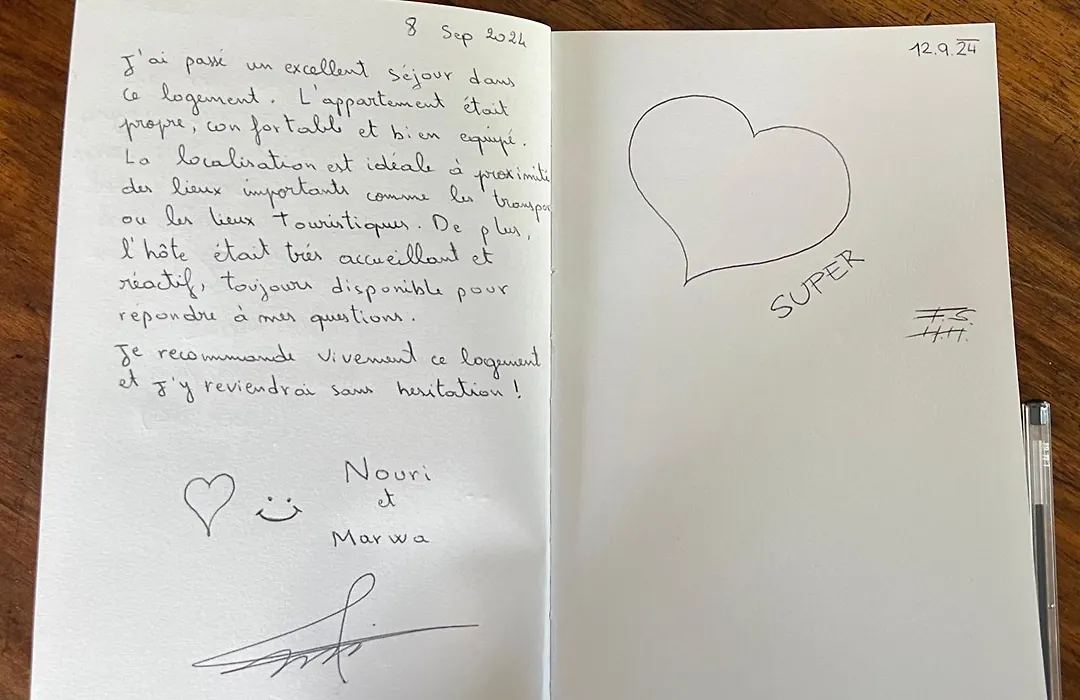 8 Sep 2024
J'ai passé un excellent séjour dans
ce logement. L'appartement était
propre, confortable et bien equipé.
La localisation est idéale à proximité
des lieux importants comme les transpo
ou les lieux touristiques. De plus,
l'hôte était très accueillant et
réactif, toujours disponible pour
répondre à mes questions.
Je recommande vivement ce logement
et j'y reviendrai sans hesitation !
Nouri
et
Marwa
12.9.24
SUPER
F.S.
H.H.